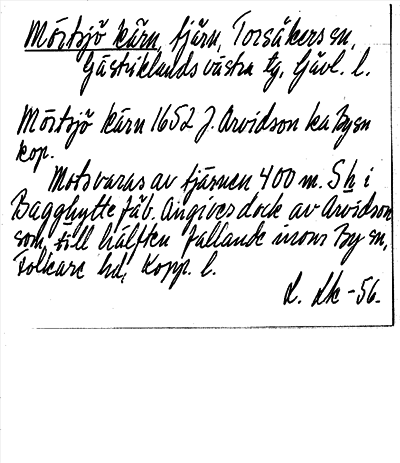 Mörtsjö kärn, tjärn, Torsåkers sn,
Gästriklands västra tg, Gävl. l.
Mörtsjö kärn 1652 J. Arvidson ka By sn
kop.
Motsvaras av tjärnen 400 m. S h i
Bagghytte fäb. Angives dock av Arvidson
som till hälften fallande inom By sn,
Folkare hd, Kopp. l.
L. Lk -56.